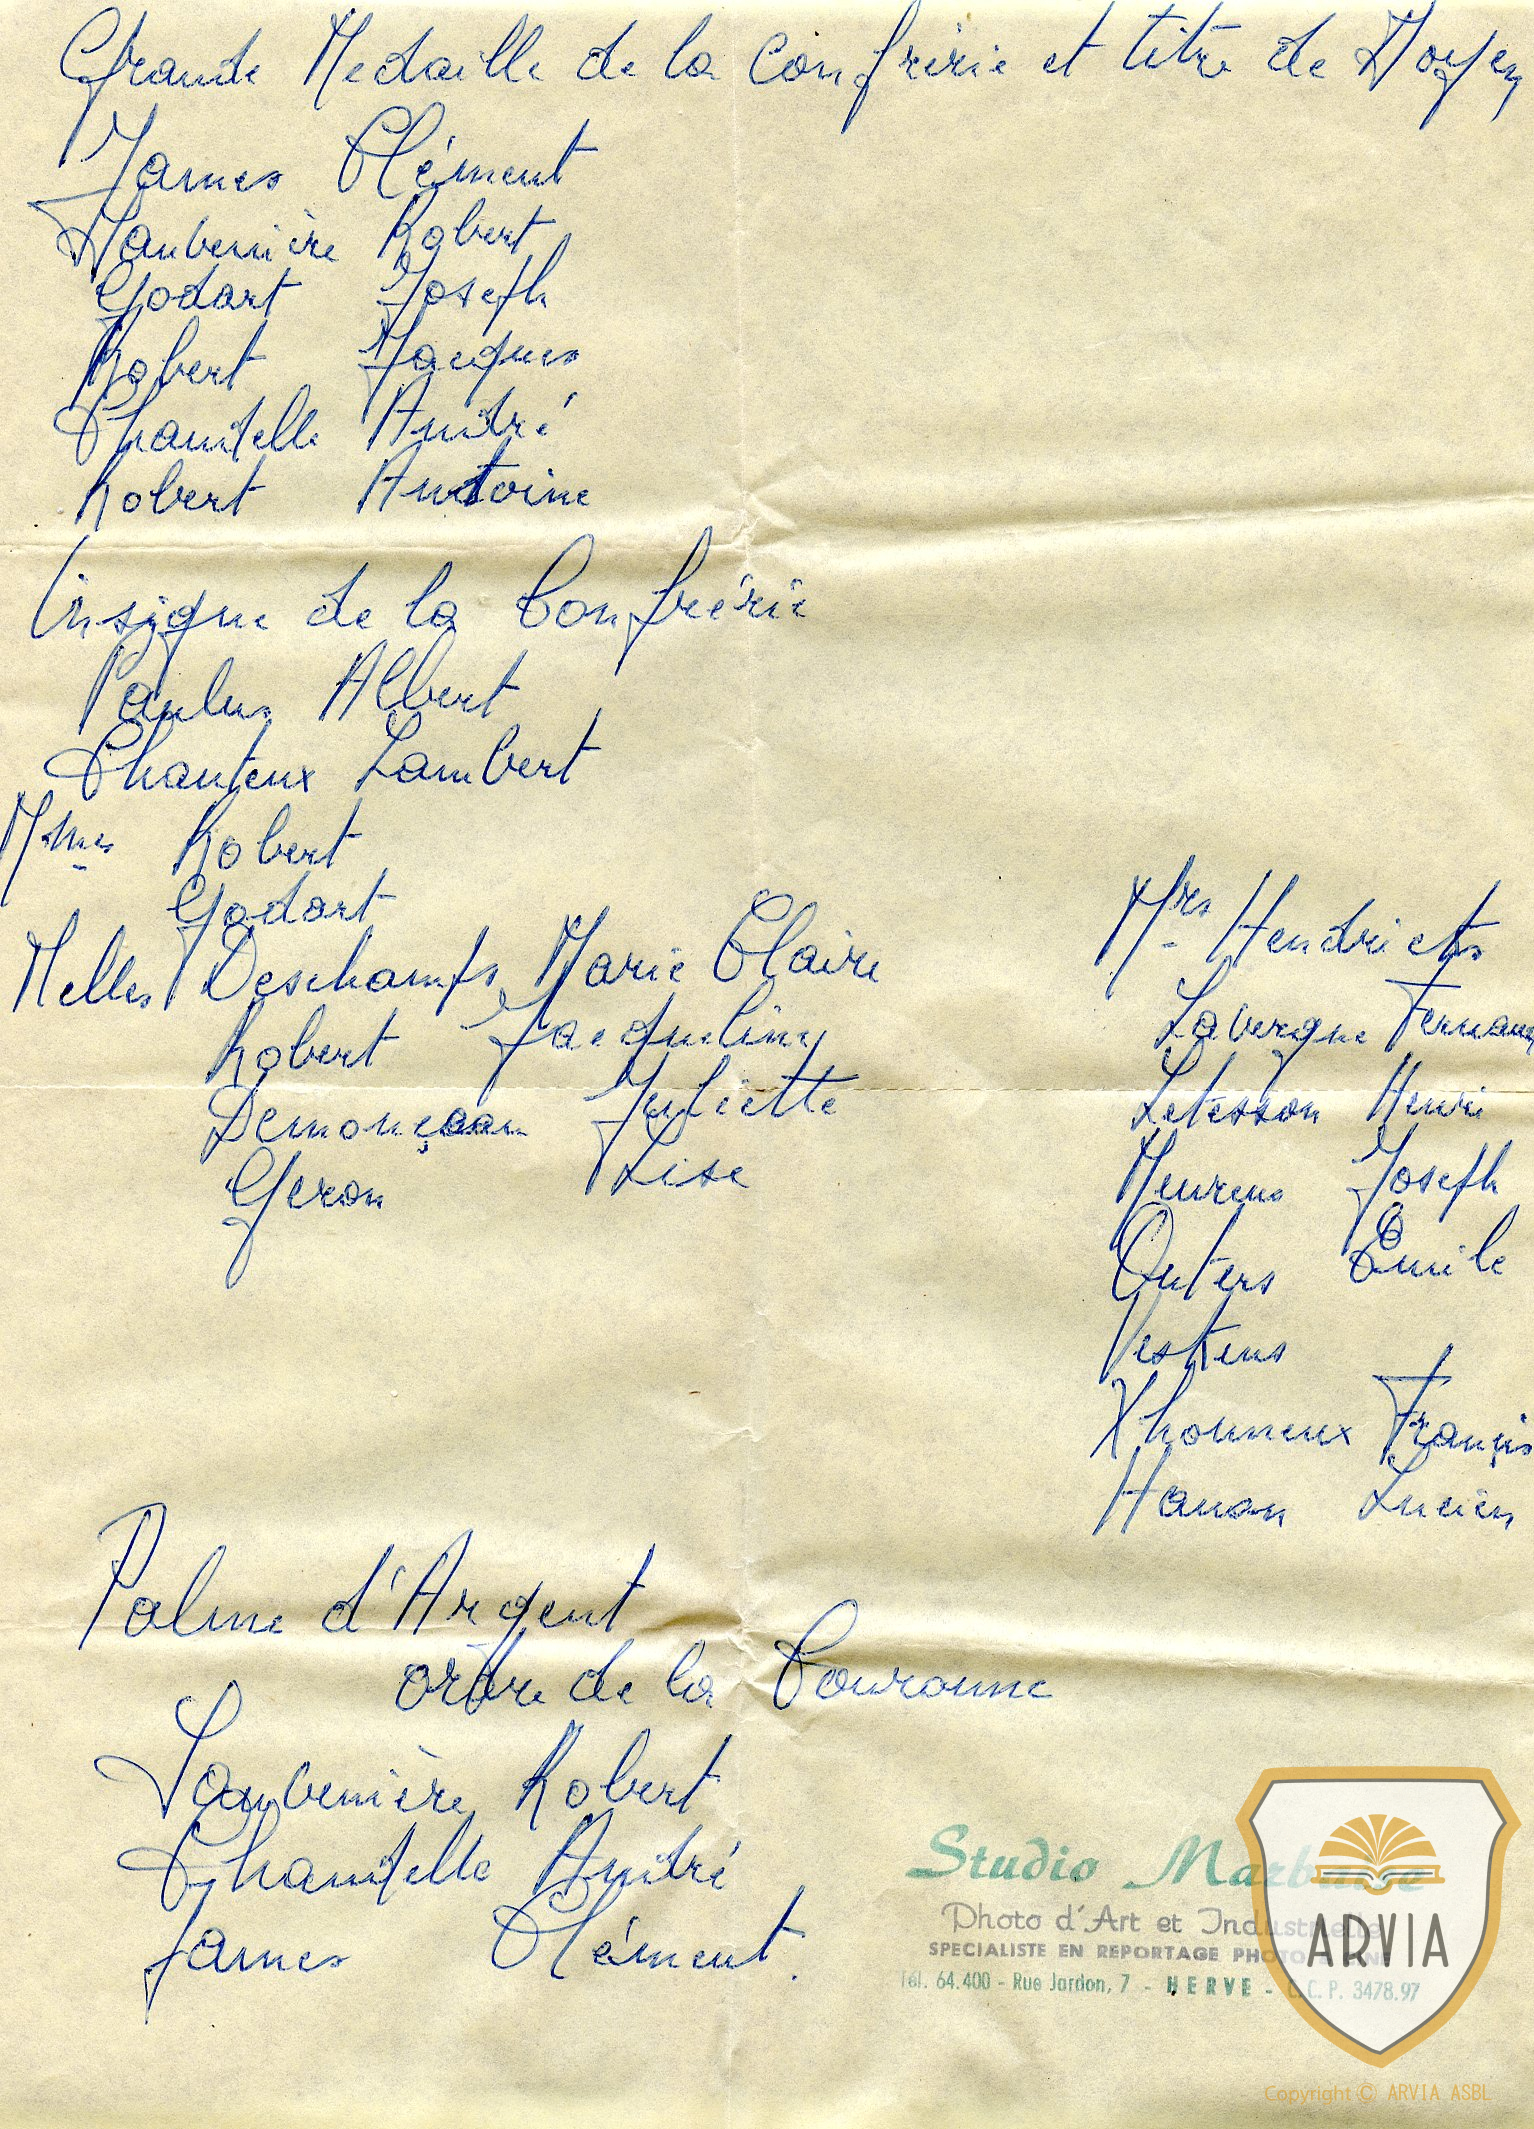 Grande Medaille de la Confrérie et titre de Doyen
James Clément
Daubenière Robert
Godart Joseph
Robert Jacques
Chantelle André
Robert Antoine
Insigne de la Confrérie
Paulus Albert
Chanteux Lambert
Mmes Robert
Godart
Melles Deschamps Marie Claire
Robert Jacqueline
Demonceau Juliette
Geron Lise
Mrs Hendrickts
Lavergne Fernand
Letesson Henri
Meurens Joseph
Outers Emile
Vestiens
Xhonneux François
Hanson Lucien
Palme d'Argent
ordre de la Couronne
Daubenière Robert
Chantelle André
James Clément.
Studio
Photo d'Art et Industrielle
SPECIALISTE EN REPORTAGE
Tél. 64.400 - Rue Jardon, 7 - HERVE - C.C.P. 3478.97
ARVIA
Copyright © ARVIA ASBL